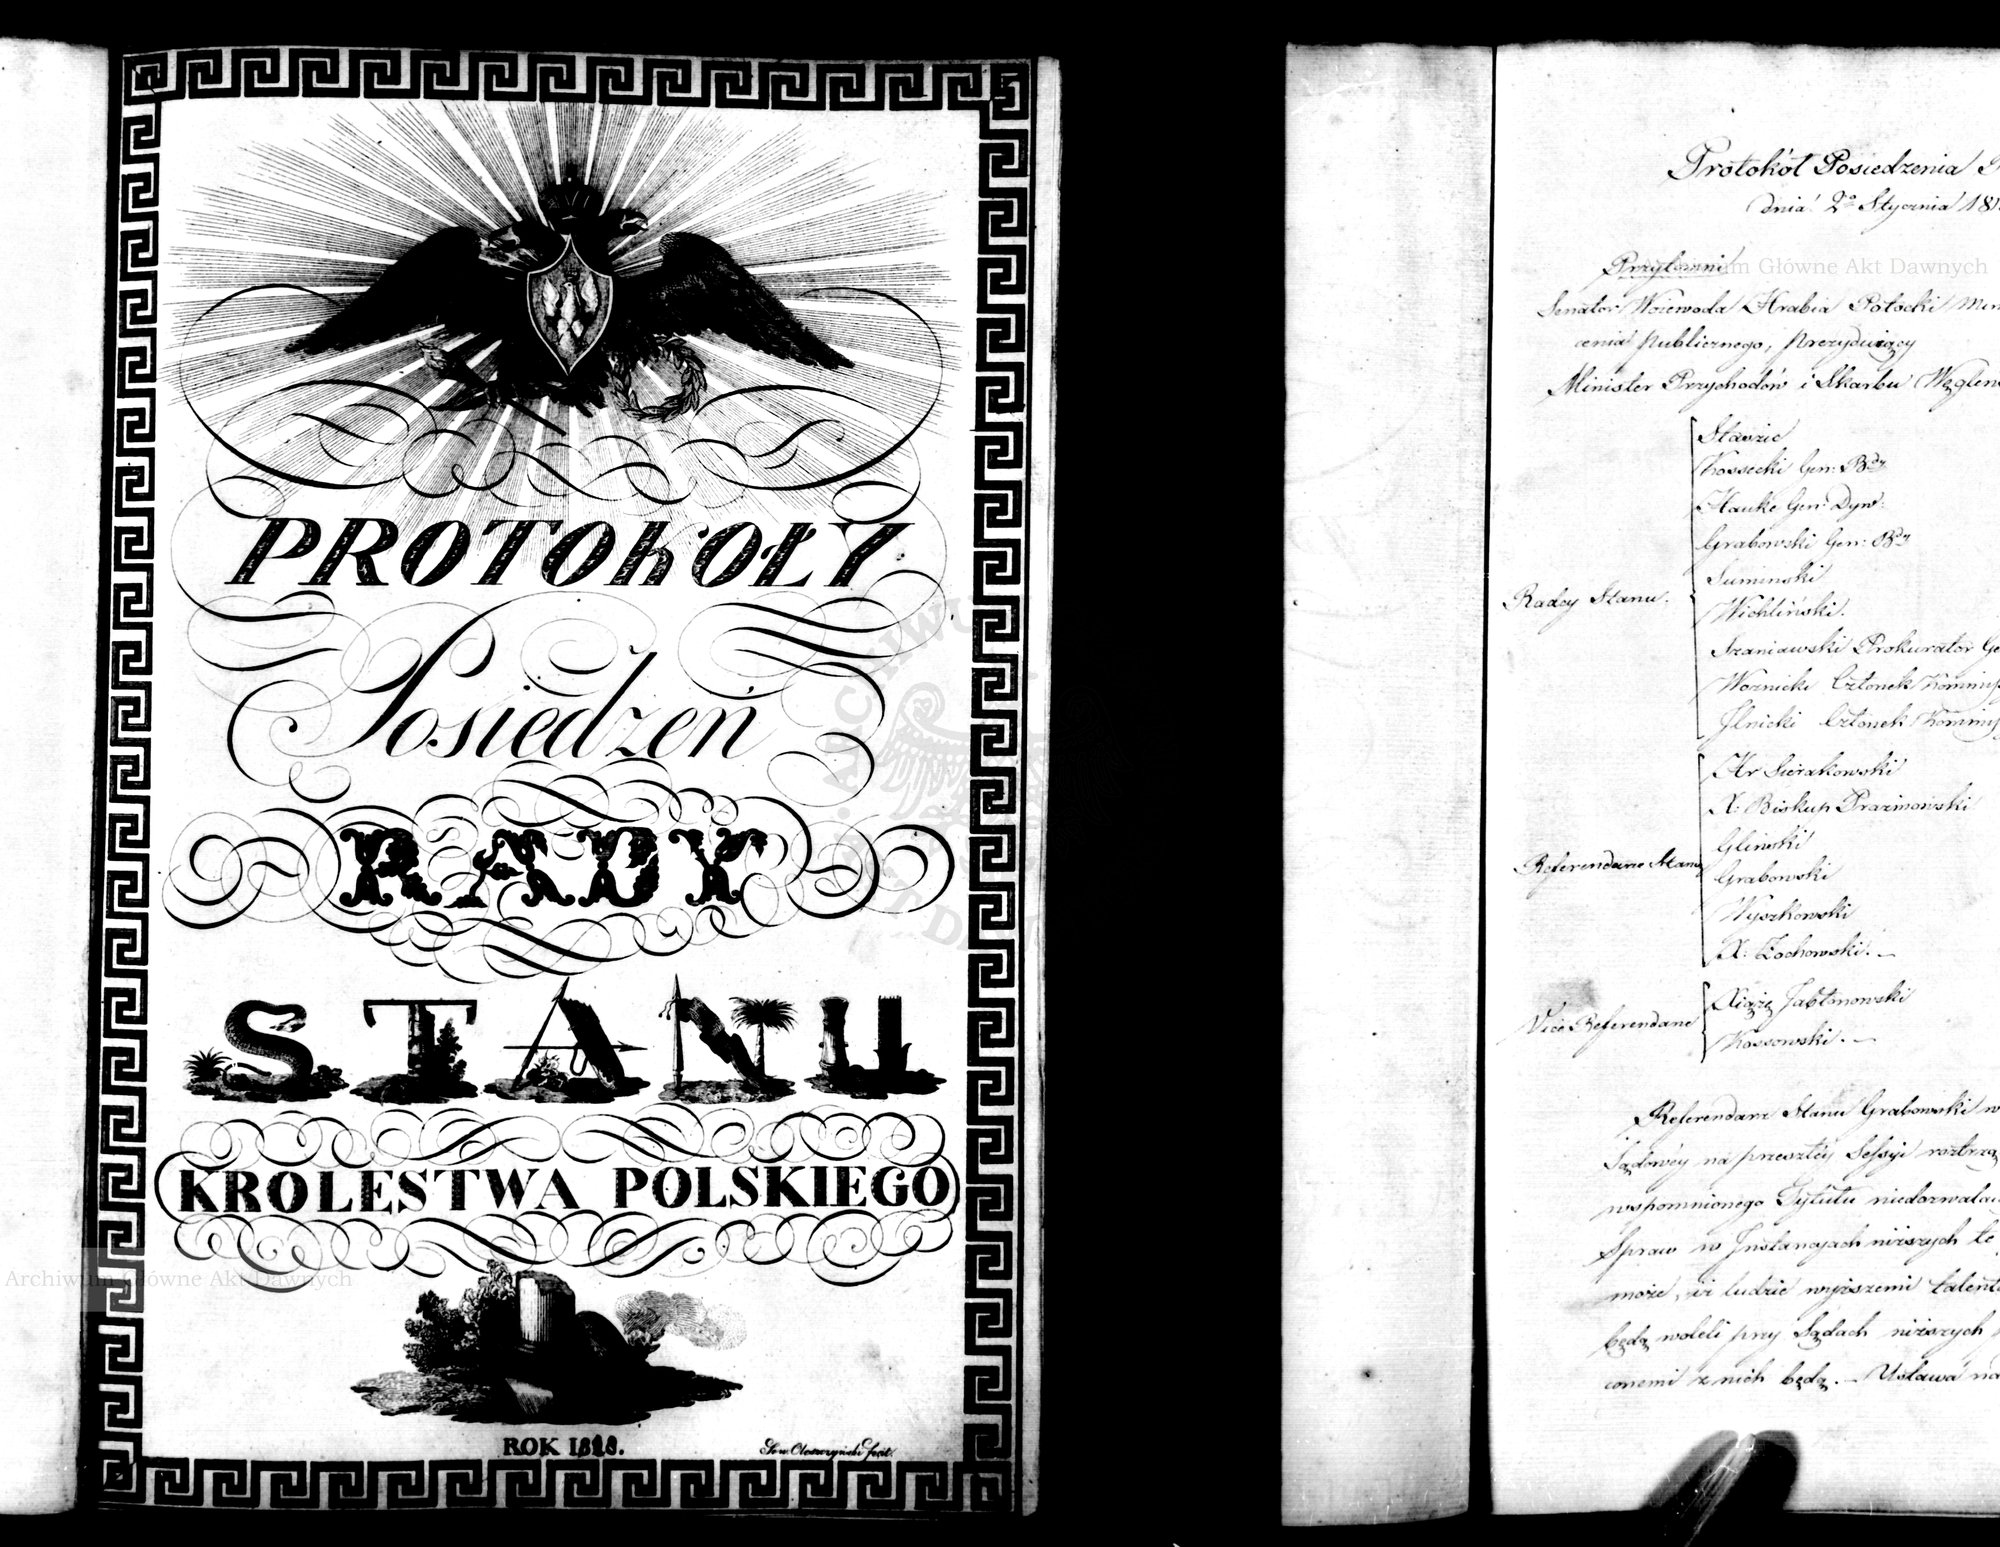 PROTOKOŁY
Posiedzeń
RADY
STANU
KRÓLESTWA POLSKIEGO
ROK 1818.
Sew. Oleszczyński fecit.
Protokół Posiedzenia
dnia 2º Stycznia 181
Przytomni
Senator Woiewoda Hrabia Potocki
cenia Publicznego, Prezyduiący
Minister Przychodów i Skarbu Węglen
Radcy Stanu.
Staszic
Kossecki Gen: Bdy
Hauke Gen: Dyw:
Grabowski Gen: Bdy
Suminski
Wichliński.
Szaniawski Prokurator Ge
Woznicki Członek Kommiss
Jlnicki Członek Kommiss
Referendarze Stanu
Hr Sierakowski
X: Biskup Prazmowski
Glinski
Grabowski
Wyszkowski
X: Żochowski. —
Vice Referendarze
Xiąże Jabłonowski
Kossowski. —
Referendarz Stanu Grabowski w
Sądowéy na przeszłéy Sessyi roztrzą
wspomnionego Tytułu niedozwalaią
Spraw w Jnstancyach niższych te
może, iż ludzie wyższemi talent
będą woleli przy Sądach niższych
conemi z nich będą. — Ustawa na
Archiwum Główne Akt Dawnych
Archiwum Główne Akt Dawnych